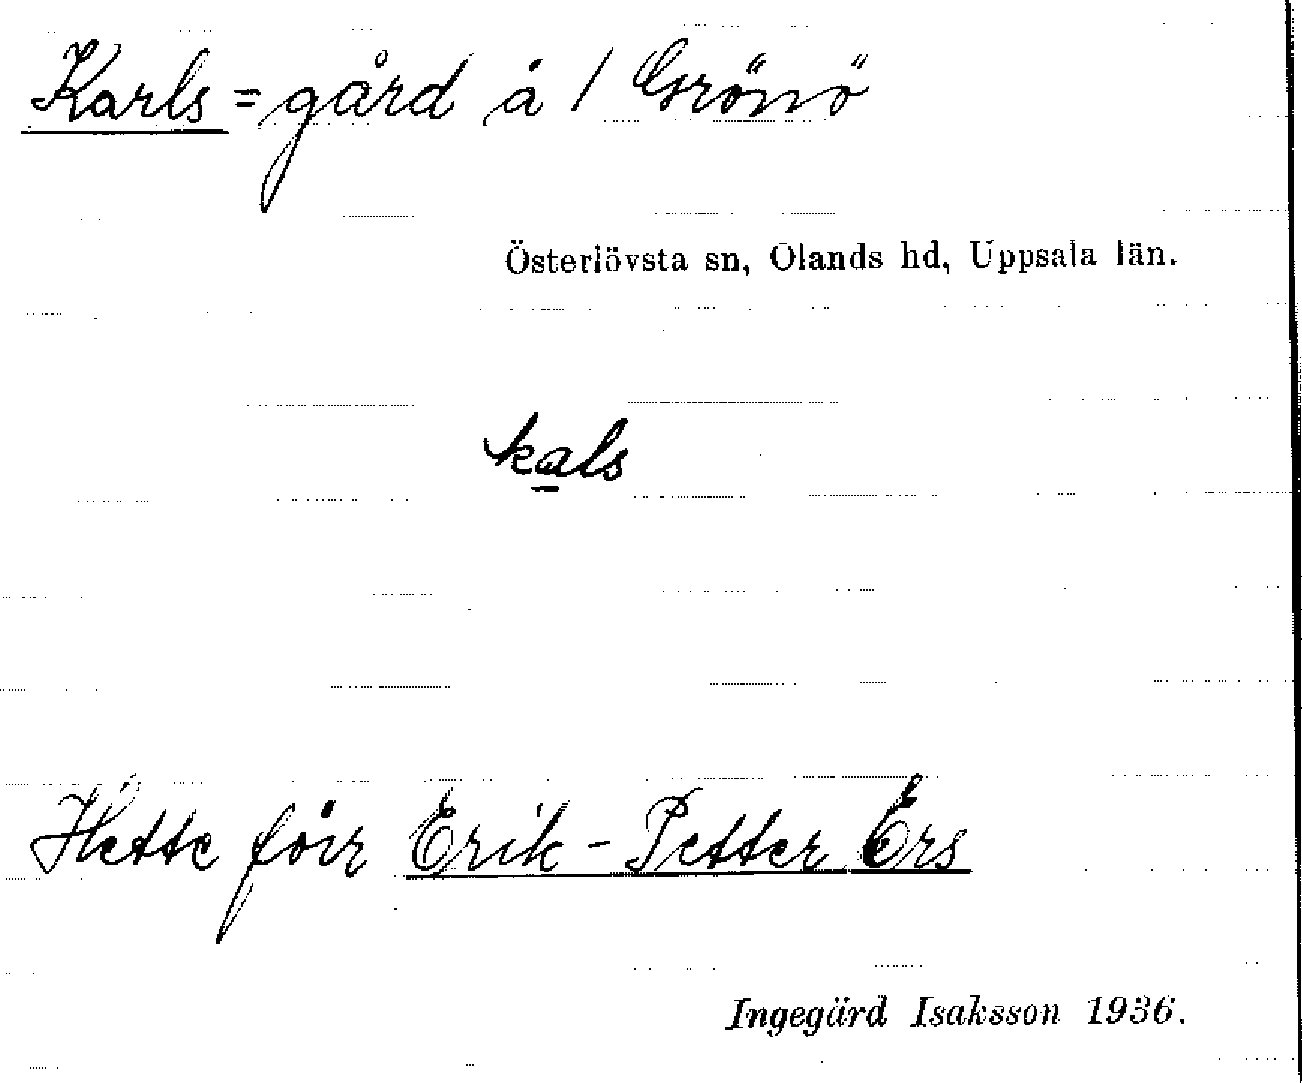 Karls = gård å / Grönö
Österlövsta sn, Olands hd, Uppsala län.
kals
Hette förr Erik-Petter Ers
Ingegärd Isaksson 1936.